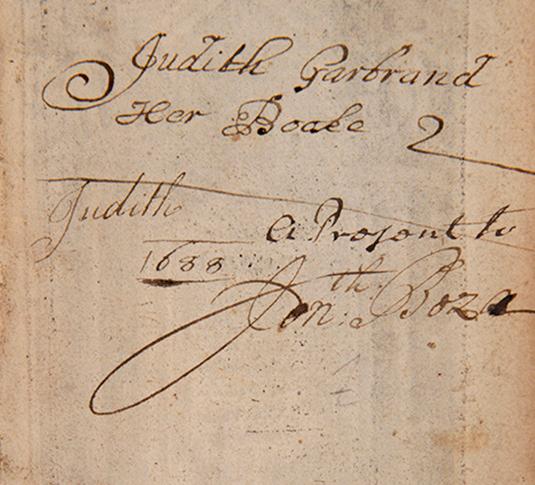 Judith Garbrand
Her Booke 2
Judith
1688
a Present to
Jonth: Boza